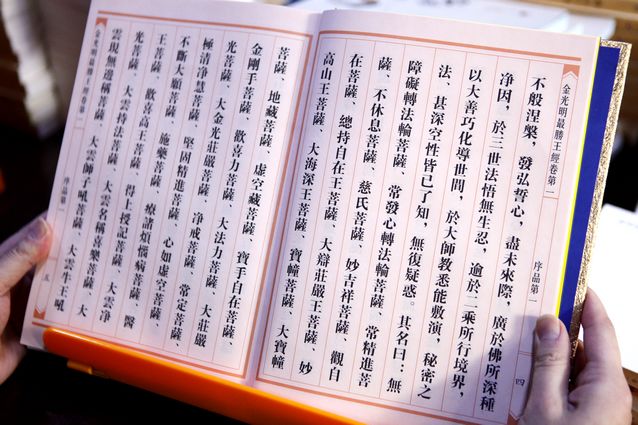 金光明最勝王經卷第一
序品第一
四
不般涅槃，發弘誓心，盡未來際，廣於佛所深種
淨因，於三世法悟無生忍，逾於二乘所行境界，
以大善巧化導世間，於大師教悉能敷演，秘密之
法、甚深空性皆已了知，無復疑惑。其名曰：無
障礙轉法輪菩薩、常發心轉法輪菩薩、常精進菩
薩、不休息菩薩、慈氏菩薩、妙吉祥菩薩、觀自
在菩薩、總持自在王菩薩、大辯莊嚴王菩薩、妙
高山王菩薩、大海深王菩薩、寶幢菩薩、大寶幢
菩薩、地藏菩薩、虛空藏菩薩、寶手自在菩薩、
金剛手菩薩、歡喜力菩薩、大法力菩薩、大莊嚴
光菩薩、大金光莊嚴菩薩、淨戒菩薩、常定菩薩、
極清淨慧菩薩、堅固精進菩薩、心如虛空菩薩、
不斷大願菩薩、施藥菩薩、療諸煩惱病菩薩、醫
王菩薩、歡喜高王菩薩、得上授記菩薩、大雲淨
光菩薩、大雲持法菩薩、大雲名稱喜樂菩薩、大
雲現無邊稱菩薩、大雲師子吼菩薩、大雲牛王吼
金光明最勝王經卷第一
序品第一
五